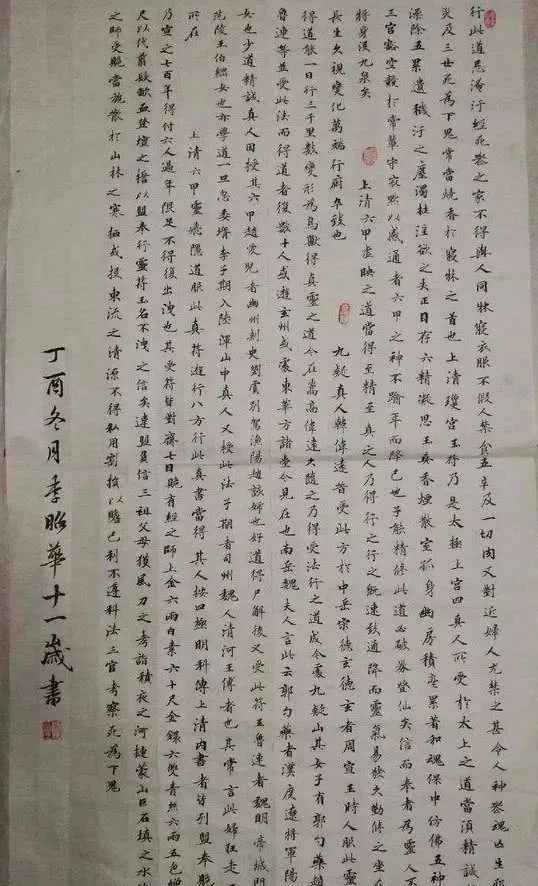 行此道忌淹汙經死喪之家不得與人同牀寢衣服不假人禁食五辛及一切肉又對近婦人尤禁之甚令人神喪魂亡生邪
災及三世死為下鬼常當燒香於寢牀之首也上清瓊宮玉符乃是太極上宮四真人所受於太上之道當須精誠
潔除五累遺穢汙之塵濁杜淫欲之失正目存六精凝思玉真香煙散室孤身幽房積毫累著和魂保中仿佛五神
三宮豁空競於常輩守寂默以感通者六甲之神不踰年而降己也子能精修此道必破券登仙矣信而奉者為靈人不
將身沒九泉矣 上清六甲虛映之道當得至精至真之人乃得行之行之既速致通降而靈氣易發久勤修之坐在
長生久視變化萬端行廚卒致也 九疑真人韓偉遠昔受此方於中岳宋德玄德玄者周宣王時人服此靈
得道能一日行三千里數變形為鳥獸得真靈之道今在嵩高偉遠久隨之乃得受法行之道成今處九疑山其女子有郭勺藥趙
魯連等並受此法而得道者復數十人或遊玄州或處東華方諸臺今見在也南岳魏夫人言此云郭勺藥者漢度遼將軍陽
女也少道精誠真人因授其六甲趙愛兒者幽州刺史劉虞別駕漁陽趙該姊也好道得尸解後又受此符王魯連者魏明帝城門
范陵王伯綱女也亦學道一旦忽委壻李子期入陸渾山中真人又授此法子期者司州魏人清河王傳者也其常言此婦狂走
所在 上清六甲靈飛隱道服此真符遊行八方行此真書當得其人按四極明科傳上清內書者皆列盟奉贐
乃宣之七百年得付六人過年限足不得復出洩也其受符皆對齋七日贐有經之師上金六兩白素六十尺金鐶六雙青絲六兩五色繒
尺以代翦髮歃血登壇之誓以盟奉行靈符玉名不洩之信矣違盟負信三祖父母獲風刀之考詣積夜之河揵蒙山巨石填之水
之師受贐當施散於山林之寒栖或投東流之清源不得私用割損以贍己利不遵科法三官考察死為下鬼
丁酉冬月季昭華十一歲書